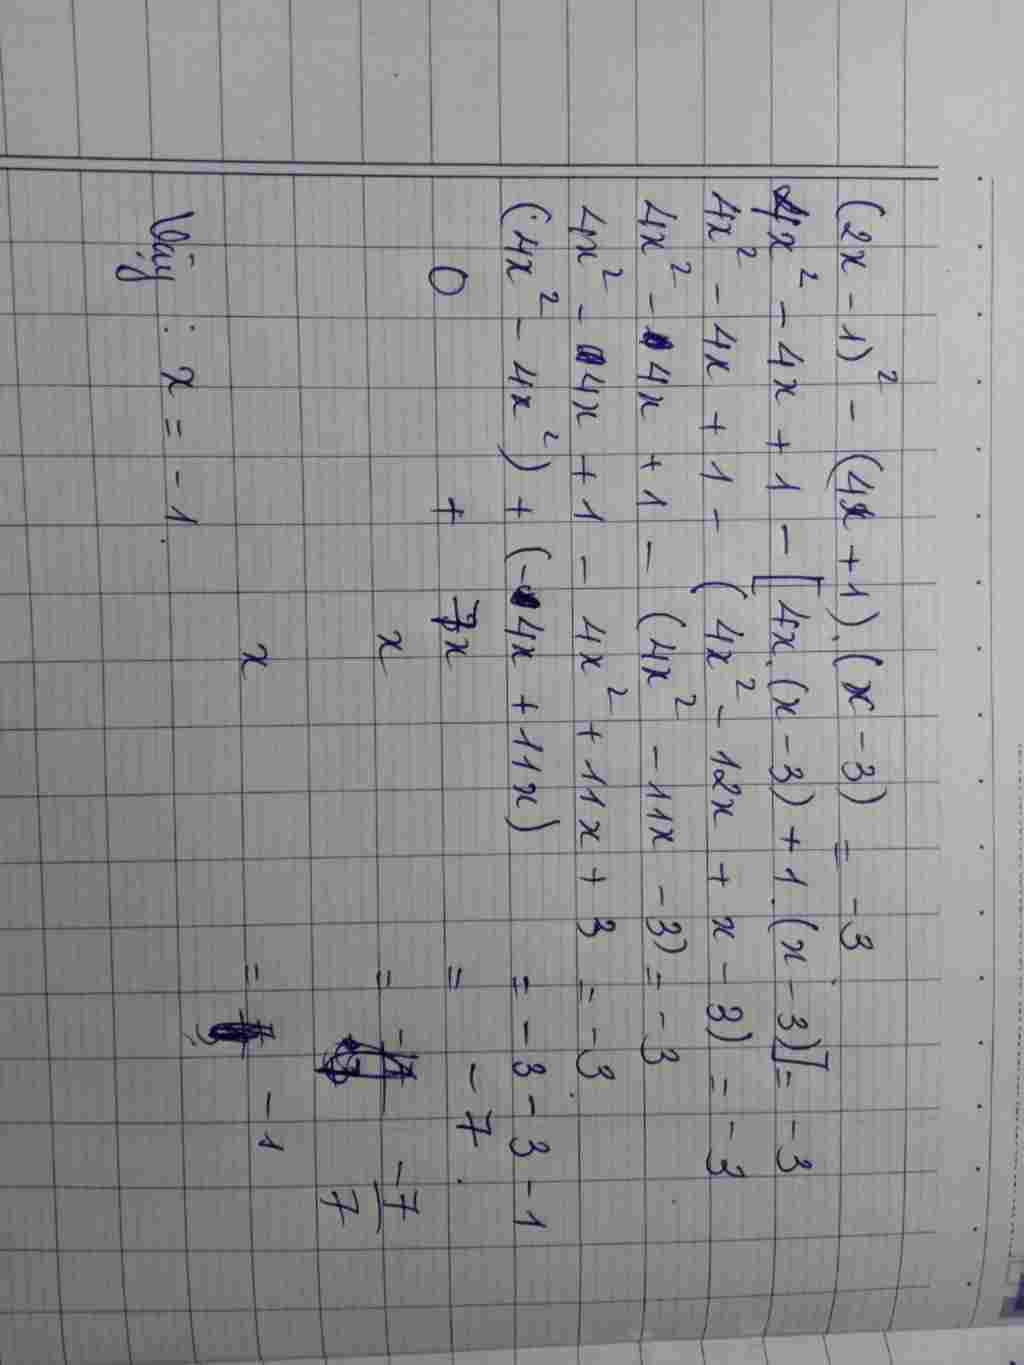 (2x - 1)² - (4x + 1).(x - 3) = -3
4x² - 4x + 1 - [4x.(x - 3) + 1.(x - 3)] = -3
4x² - 4x + 1 - (4x² - 12x + x - 3) = -3
4x² - 4x + 1 - (4x² - 11x - 3) = -3
4x² - 4x + 1 - 4x² + 11x + 3 = -3
(4x² - 4x²) + (-4x + 11x) = -3 - 3 - 1
0 + 7x = -7
x = -7/7
x = -1
Vậy : x = -1.